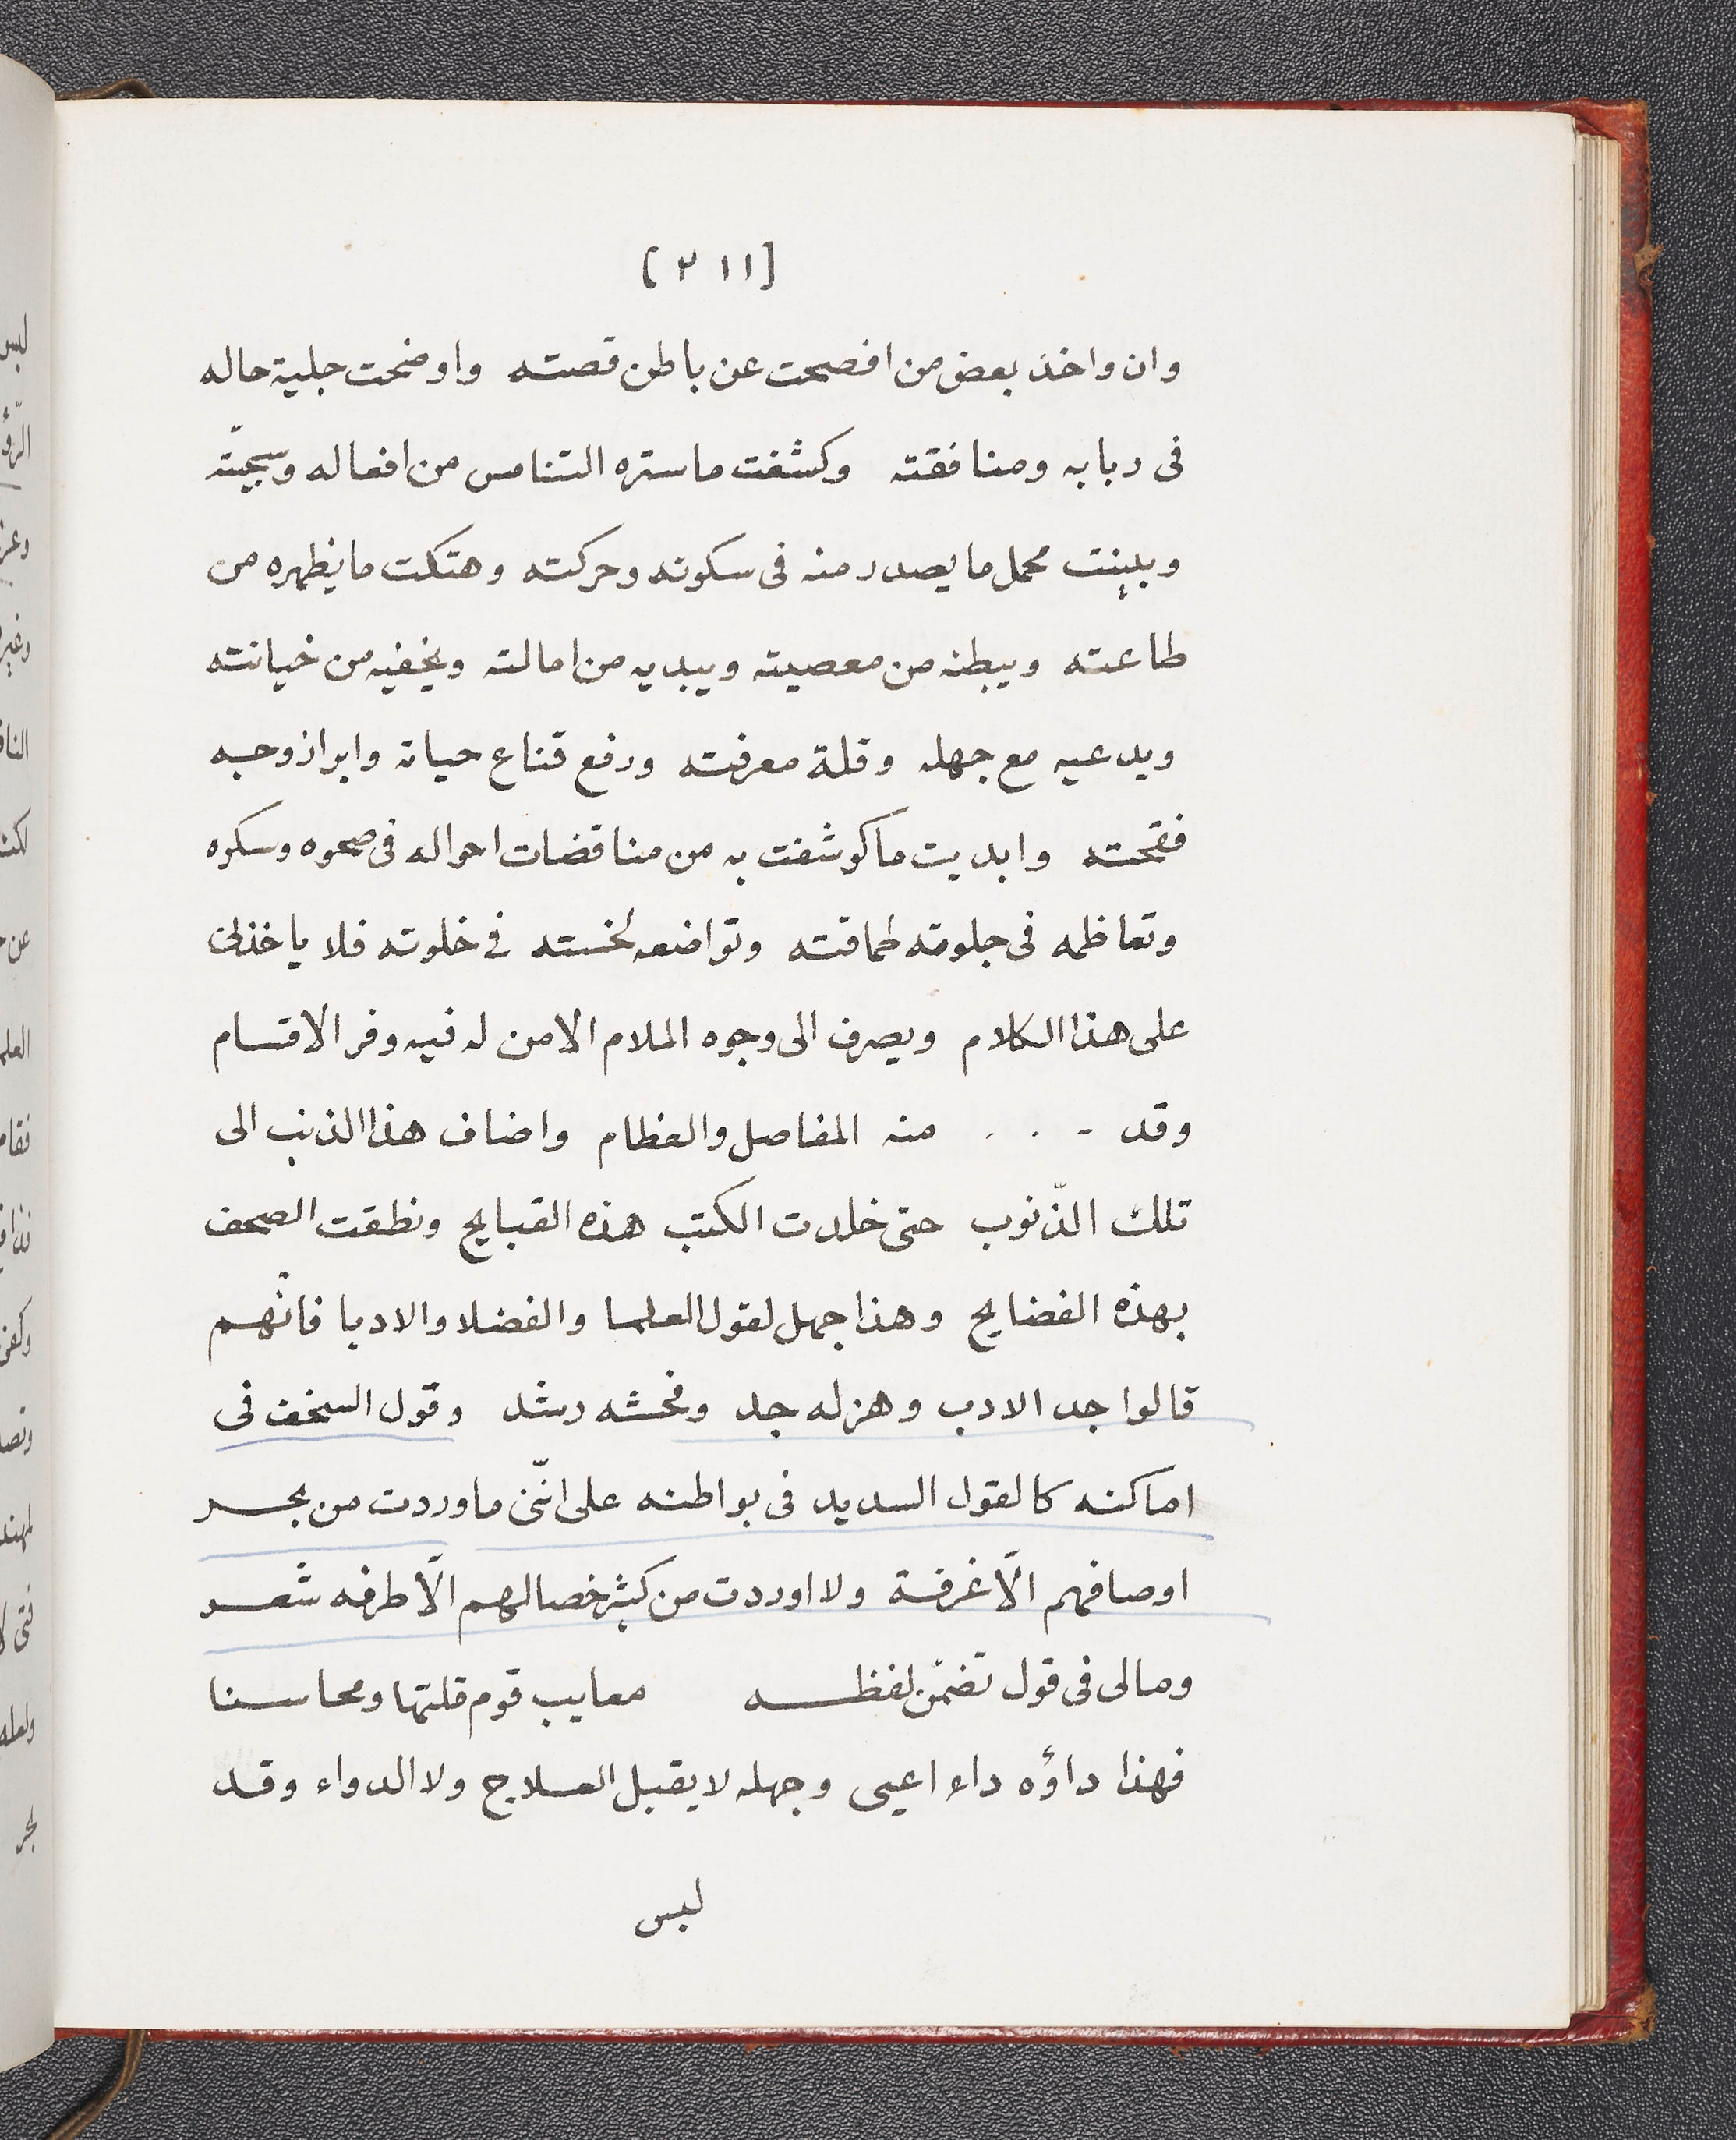 [٢١١]
وان واخذ بعض من افصحت عن باطن قصته واوضحت جلية حاله
فى ربابه ومنافقته وكشفت ماستره التنامس من افعاله وسجيّته
وبينت محمل ما يصدر منه فى سكوته وحركته وهتكت ما يظهره من
طاعته ويبطنه من معصيته ويبديه من امالته ويخفيه من خيانته
ويدعيه مع جهله وقلة معرفته ورفع قناع حياته وابراز وجه
فقحته وابديت ما كوشفت به من مناقضات احواله فى صحوه وسكره
وتعاظمه فى جلوته لحماقته وتواضعه لخسته فى خلوته فلا ياخذنى
على هذا الكلام ويصرف الى وجوه الملام الا من له فيه وفر الاقسام
وقد - . . . منه المفاصل والعظام واضاف هذا الذنب الى
تلك الذّنوب حتى خلدت الكتب هذه القبايح ونطقت الصحف
بهذه الفضايح وهذا جهل لقول العلما والفضلا والادبا فانهم
قالوا جد الادب وهزله جد وفحشه رشد وقول السخف فى
اماكنه كالقول السديد فى بواطنه على انّنى ما وردت من بحر
اوصافهم الّا غرفة ولا اوردت من كثير خصالهم الّا طرفه شعر
ومالى فى قول تضمّن لفظه معايب قوم قلتها ومحاسنا
فهذا داؤه داء اعيى وجهله لا يقبل العلاج ولا الدواء وقد
لبس